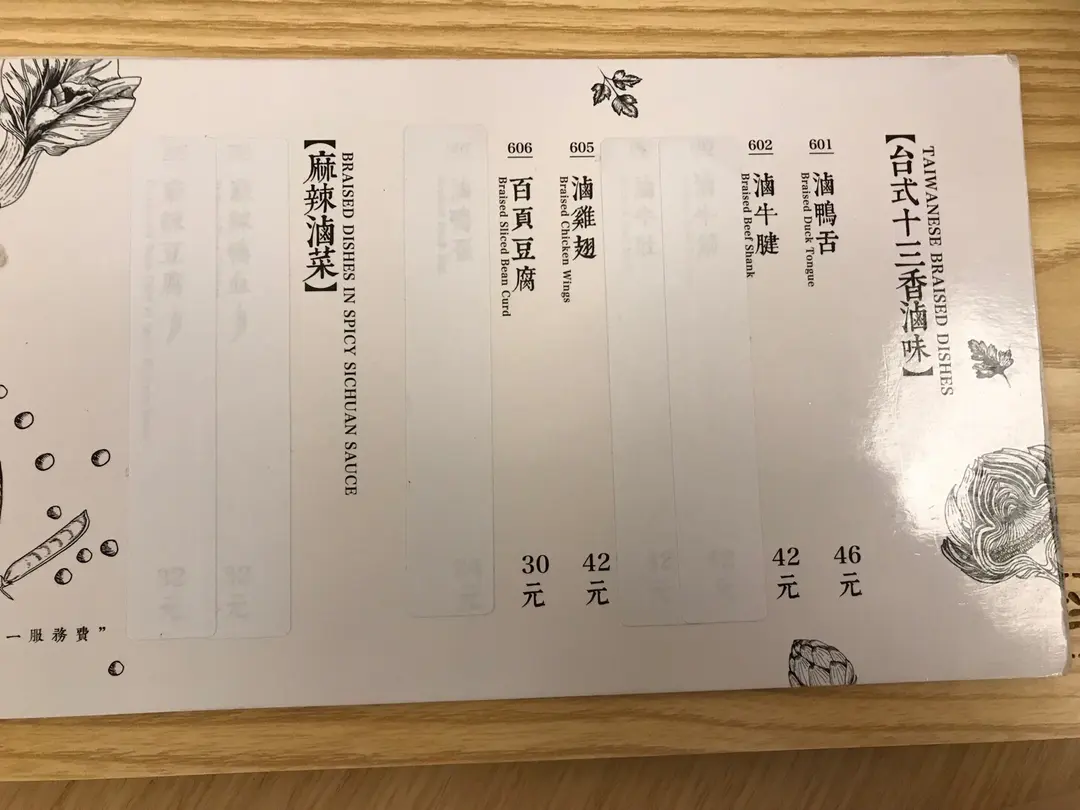 【台式十三香滷味】
TAIWANESE BRAISED DISHES
601
滷鴨舌
Braised Duck Tongue
46元
602
滷牛腱
Braised Beef Shank
42元
605
滷雞翅
Braised Chicken Wings
42元
606
百頁豆腐
Braised Sliced Bean Curd
30元
【麻辣滷菜】
BRAISED DISHES IN SPICY SICHUAN SAUCE
一服務費”